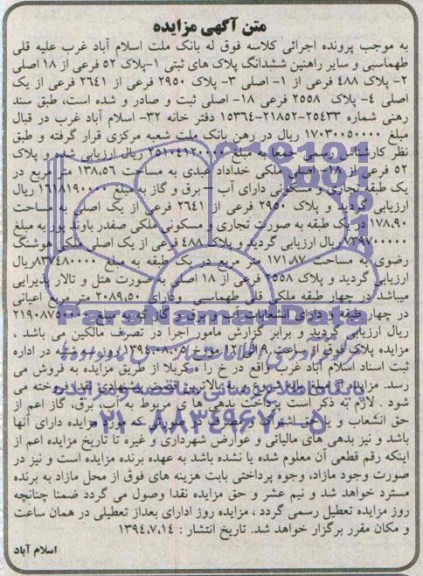 متن آگهی مزایده
به موجب پرونده اجرائی کلاسه فوق له بانک ملت اسلام آباد غرب علیه قلی
طهماسبی و سایر راهنین ششدانگ پلاک های ثبتی ۱-پلاک ۵۲ فرعی از ۱۸ اصلی
۲- پلاک ۴۸۸ فرعی از ۱- اصلی ۳- پلاک ۲۹۵۰ فرعی از ۲۶۴۱ فرعی از یک
اصلی ۴- پلاک ۲۵۵۸ فرعی ۱۸- اصلی ثبت و صادر و شده است، طبق سند
رهنی شماره ۲۵۴۳۳-۲۱۸۵۲-۱۵۳۶۴ دفتر خانه ۳۲- اسلام آباد غرب در قبال
مبلغ ۱۷۰۳۰۰۵۰۰۰۰ ریال در رهن بانک ملت شعبه مرکزی قرار گرفته و طبق
نظر کارشناس رسمی جمعا به مبلغ ریال ارزیابی شده و پلاک
۵۲ فرعی از ۱۸ اصلی ملکی خداداد عبدی به مساحت ۱۳۸.۵۶ متر مربع در
یک طبقه تجاری و مسکونی دارای آب - برق و گاز به مبلغ ریال
ارزیابی گردید و پلاک ۲۹۵۰ فرعی از ۲۶۴۱ فرعی از یک اصلی به مساحت
۱۷۸.۹۰ در یک طبقه به صورت تجاری و مسکونی ملکی صفدر باوند پور به مبلغ
ریال ارزیابی گردید و پلاک ۴۸۸ فرعی از یک اصلی ملکی هوشنگ
رضوی به مساحت ۱۷۱.۸۷ متر مربع در یک طبقه به مبلغ ریال
ارزیابی گردید و پلاک ۲۵۵۸ فرعی از ۱۸ اصلی به صورت هتل و تالار پذیرایی
میباشد در چهار طبقه ملکی قلی طهماسبی و دارای ۲۰۸۹.۵۰ متر مربع اعیانی
در چهار طبقه و دارای انشعابات آب و برق و گاز به مبلغ ۲۱۹۰۸۷۵۰۰۰۰
ریال ارزیابی گردید و برابر گزارش مامور اجرا در تصرف مالکین می باشد ،
مزایده پلاک فوق از ساعت ۹ الی ۱۲ مورخ ۱۳۹۴.۰۸.۰۵ روز سه شنبه در اداره
ثبت اسناد اسلام آباد غرب واقع در خ راه کربلا از طریق مزایده به فروش می
رسد. مزایده از مبلغ پایه شروع و به بالاترین قیمت پیشنهادی نقدا فروخته می
شود . لازم به ذکر است پرداخت بدهی های مربوط به آب، برق، گاز اعم از
حق انشعاب و یا حق اشتراک و مصرف در صورتی که مورد مزایده دارای آنها
باشد و نیز بدهی های مالیاتی و عوارض شهرداری و غیره تا تاریخ مزایده اعم از
اینکه رقم قطعی آن معلوم شده یا نشده باشد به عهده برنده مزایده است و نیز در
صورت وجود مازاد، وجوه پرداختی بابت هزینه های فوق از محل مازاد به برنده
مسترد خواهد شد و نیم عشر و حق مزایده نقدا وصول می گردد ضمنا چنانچه
روز مزایده تعطیل رسمی گردد ، مزایده روز اداری بعداز تعطیلی در همان ساعت
و مکان مقرر برگزار خواهد شد. تاریخ انتشار : ۱۳۹۴.۷.۱۴
اسلام آباد
ParsNamadData
پایگاه اطلاع رسانی مناقصه و مزایده
۰۲۱-۸۸۳۴۹۶۷۰-۵